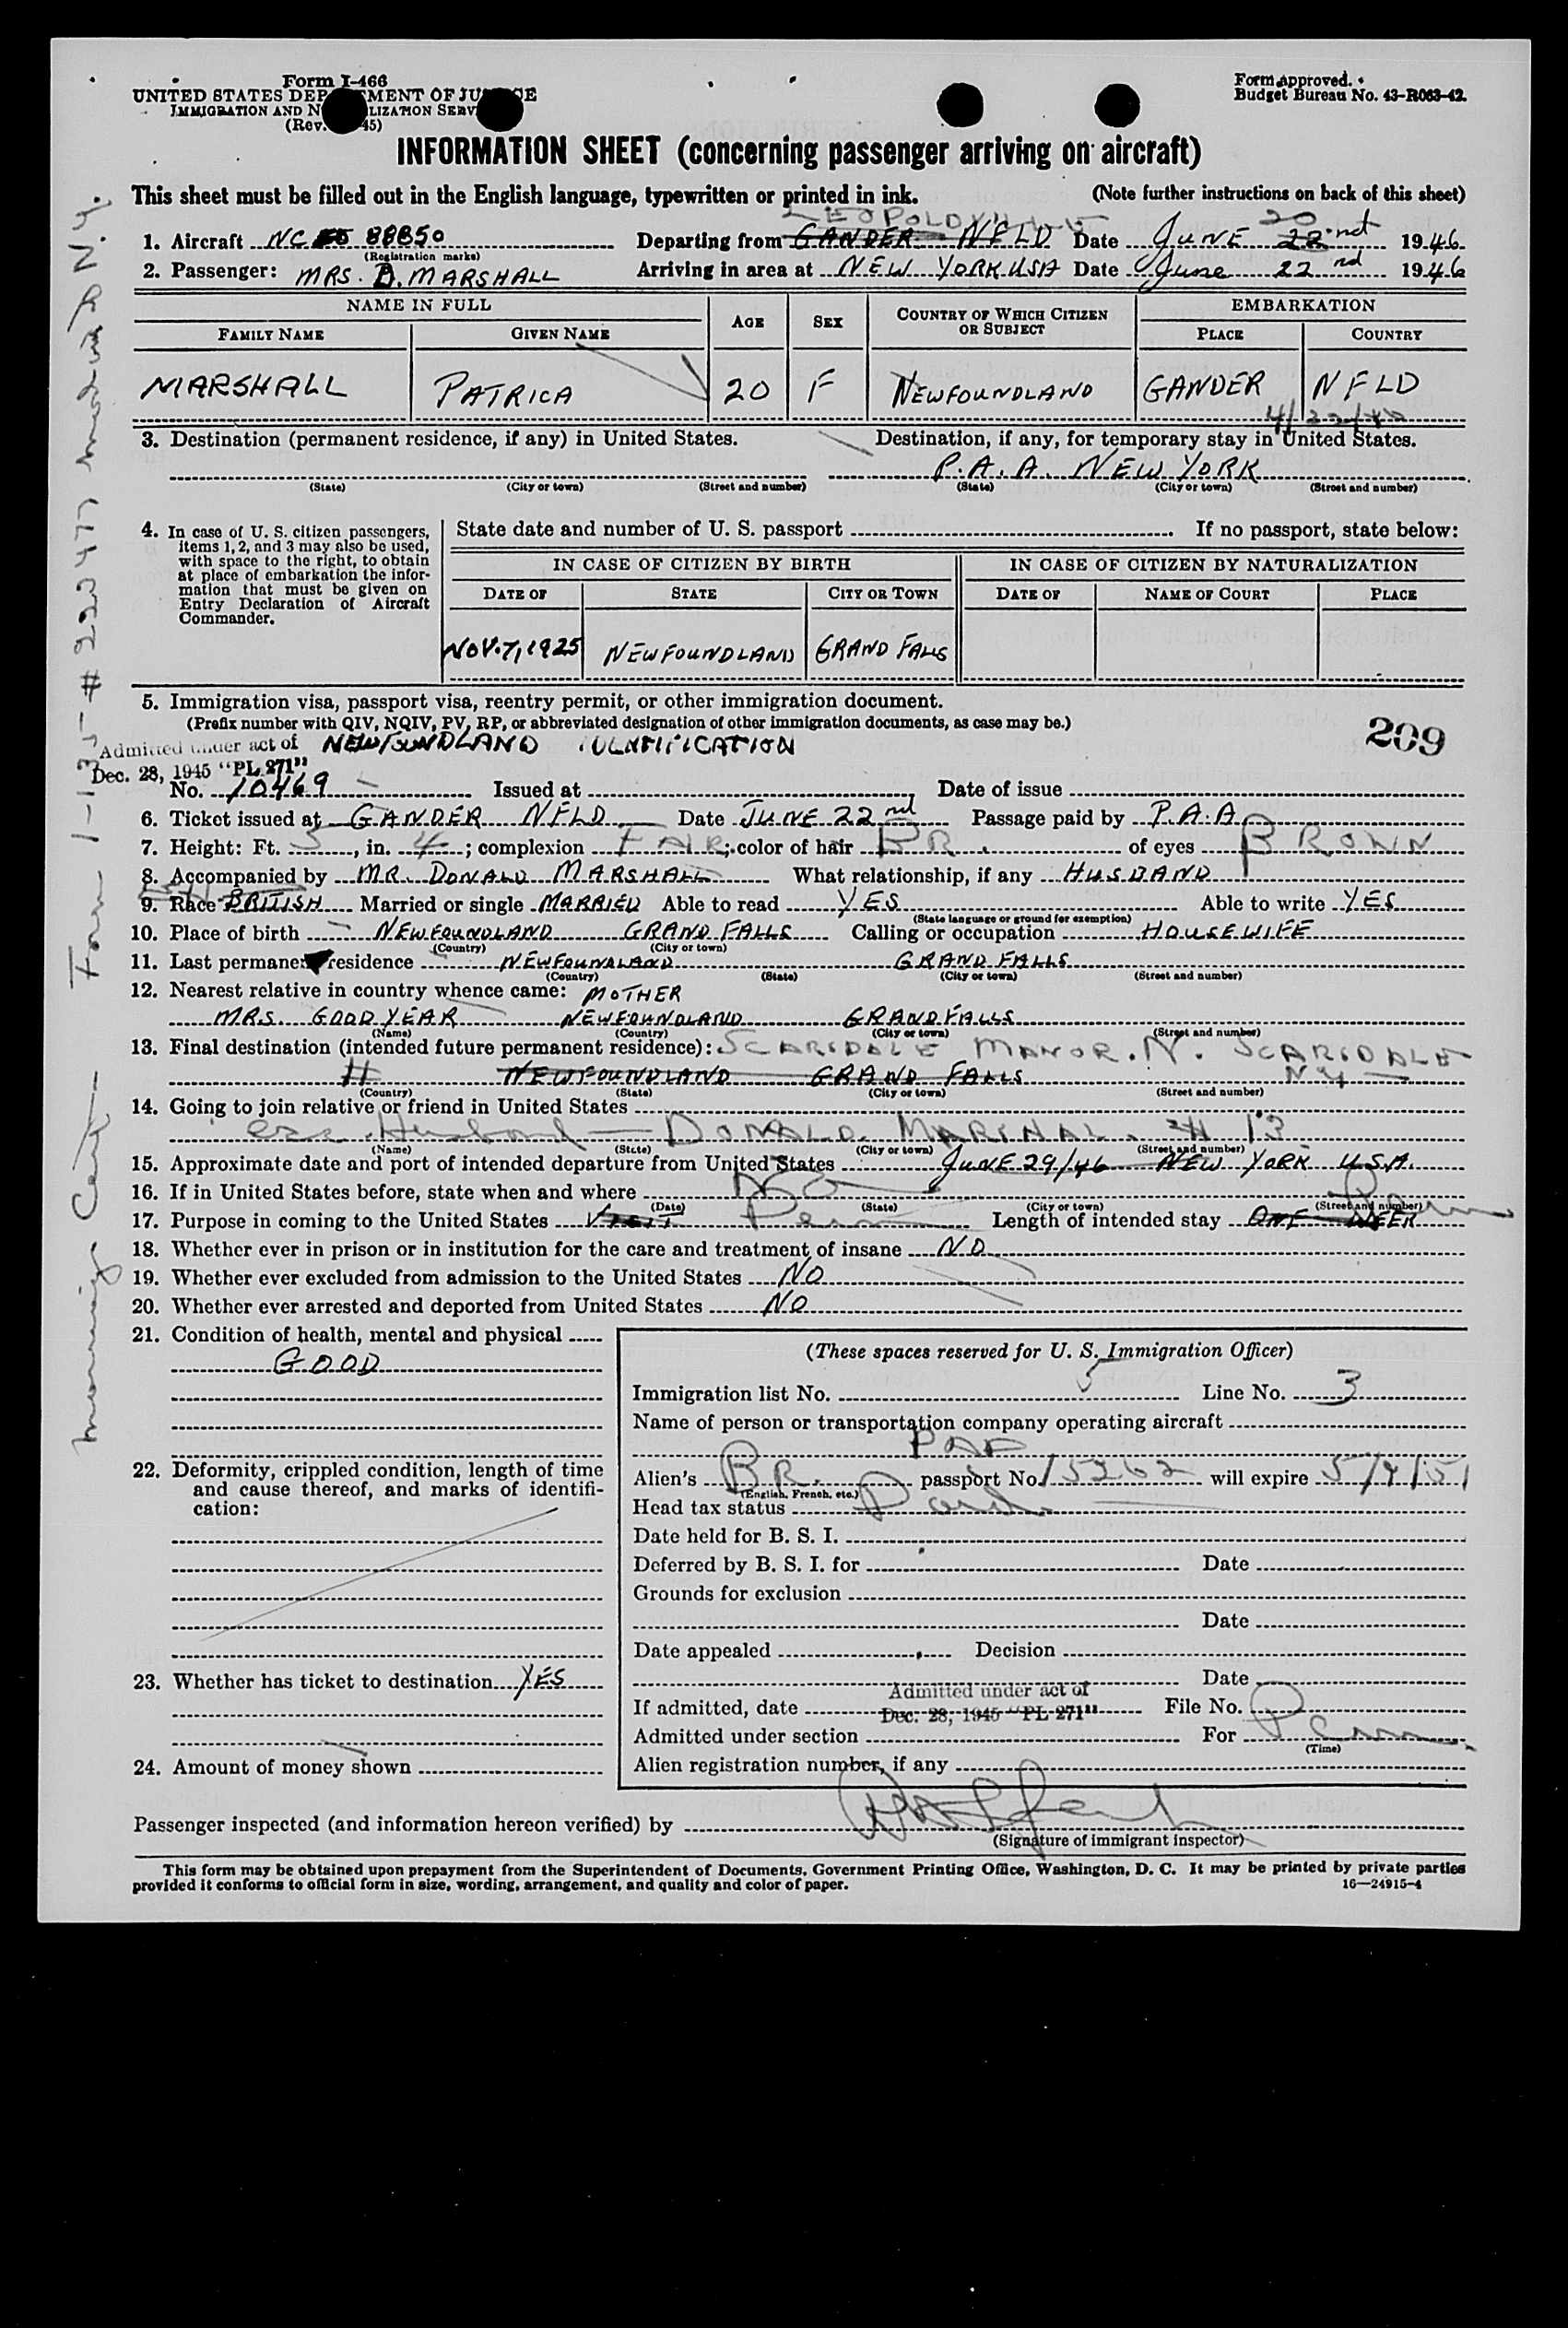 Form I-466
UNITED STATES DEP MENT OF JU E
IMMIGRATION AND N LIZATION SERV
(Rev. 45)
Form Approved.
Budget Bureau No. 43-R063-42.
INFORMATION SHEET (concerning passenger arriving on aircraft)
This sheet must be filled out in the English language, typewritten or printed in ink. (Note further instructions on back of this sheet)
LEOPOLDVILLE 20
1. Aircraft NC 88850 Departing from GANDER NFLD Date JUNE 22nd 1946
(Registration marks)
2. Passenger: MRS. D. MARSHALL Arriving in area at NEW YORK USA Date June 22nd 1946
NAME IN FULL AGE SEX COUNTRY OF WHICH CITIZEN OR SUBJECT EMBARKATION
FAMILY NAME GIVEN NAME PLACE COUNTRY
MARSHALL PATRICA 20 F NEWFOUNDLAND GANDER NFLD
3. Destination (permanent residence, if any) in United States. Destination, if any, for temporary stay in United States.
P.A.A. NEW YORK
(State) (City or town) (Street and number) (State) (City or town) (Street and number)
4. In case of U. S. citizen passengers, items 1, 2, and 3 may also be used, with space to the right, to obtain at place of embarkation the information that must be given on Entry Declaration of Aircraft Commander.
State date and number of U. S. passport If no passport, state below:
IN CASE OF CITIZEN BY BIRTH IN CASE OF CITIZEN BY NATURALIZATION
DATE OF STATE CITY OR TOWN DATE OF NAME OF COURT PLACE
NOV. 7, 1925 NEWFOUNDLAND GRAND FALLS
5. Immigration visa, passport visa, reentry permit, or other immigration document.
(Prefix number with QIV, NQIV, PV, RP, or abbreviated designation of other immigration documents, as case may be.)
209
Admitted under act of NEWFOUNDLAND IDENTIFICATION
Dec. 28, 1945 "PL 271"
No. 10469 Issued at Date of issue
6. Ticket issued at GANDER NFLD Date JUNE 22nd Passage paid by P.A.A
7. Height: Ft. 5, in. 4; complexion FAIR; color of hair BR. of eyes BROWN
8. Accompanied by MR. DONALD MARSHALL What relationship, if any HUSBAND
9. Race BRITISH Married or single MARRIED Able to read YES Able to write YES
(State language or ground for exemption)
10. Place of birth NEWFOUNDLAND GRAND FALLS Calling or occupation HOUSEWIFE
(Country) (City or town)
11. Last permanent residence NEWFOUNDLAND GRAND FALLS
(Country) (State) (City or town) (Street and number)
12. Nearest relative in country whence came: MOTHER
MRS. GOODYEAR NEWFOUNDLAND GRAND FALLS
(Name) (Country) (City or town) (Street and number)
13. Final destination (intended future permanent residence): SCARSDALE MANOR. N. SCARSDALE
NEWFOUNDLAND GRAND FALLS NY
(Country) (State) (City or town) (Street and number)
14. Going to join relative or friend in United States
Husband — DONALD MARSHAL. # 13
(Name) (State) (City or town) (Street and number)
15. Approximate date and port of intended departure from United States JUNE 29/46 NEW YORK U.S.A.
16. If in United States before, state when and where NO
(Date) (State) (City or town) (Street and number)
17. Purpose in coming to the United States VISIT Perm Length of intended stay ONE WEEK Perm
18. Whether ever in prison or in institution for the care and treatment of insane NO
19. Whether ever excluded from admission to the United States NO
20. Whether ever arrested and deported from United States NO
21. Condition of health, mental and physical
GOOD
22. Deformity, crippled condition, length of time and cause thereof, and marks of identification:
23. Whether has ticket to destination YES
24. Amount of money shown
(These spaces reserved for U. S. Immigration Officer)
Immigration list No. 5 Line No. 3
Name of person or transportation company operating aircraft
PAA
Alien's BR. passport No. 15262 will expire 5/4/51
(English, French, etc.)
Head tax status Paid
Date held for B. S. I.
Deferred by B. S. I. for Date
Grounds for exclusion
Date
Date appealed Decision
Date
If admitted, date Admitted under act of Dec. 28, 1945 "PL 271" File No.
Admitted under section For Perm
(Time)
Alien registration number, if any
Passenger inspected (and information hereon verified) by
(Signature of immigrant inspector)
This form may be obtained upon prepayment from the Superintendent of Documents, Government Printing Office, Washington, D. C. It may be printed by private parties
provided it conforms to official form in size, wording, arrangement, and quality and color of paper. 16—24915-4